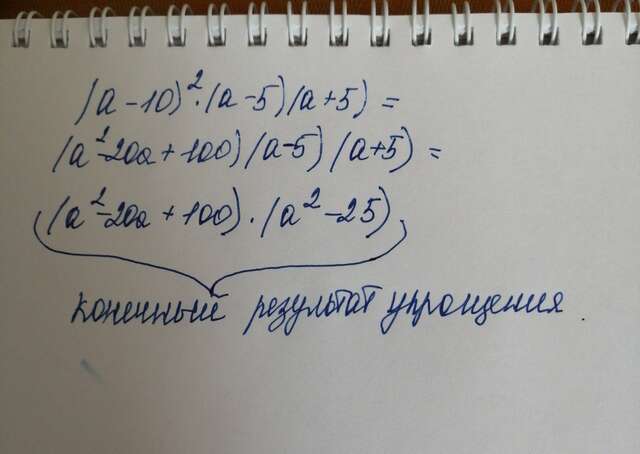 (a-10)²·(a-5)(a+5)=
(a²-20a+100)(a-5)(a+5)=
(a²-20a+100)·(a²-25)
конечный результат упрощения.